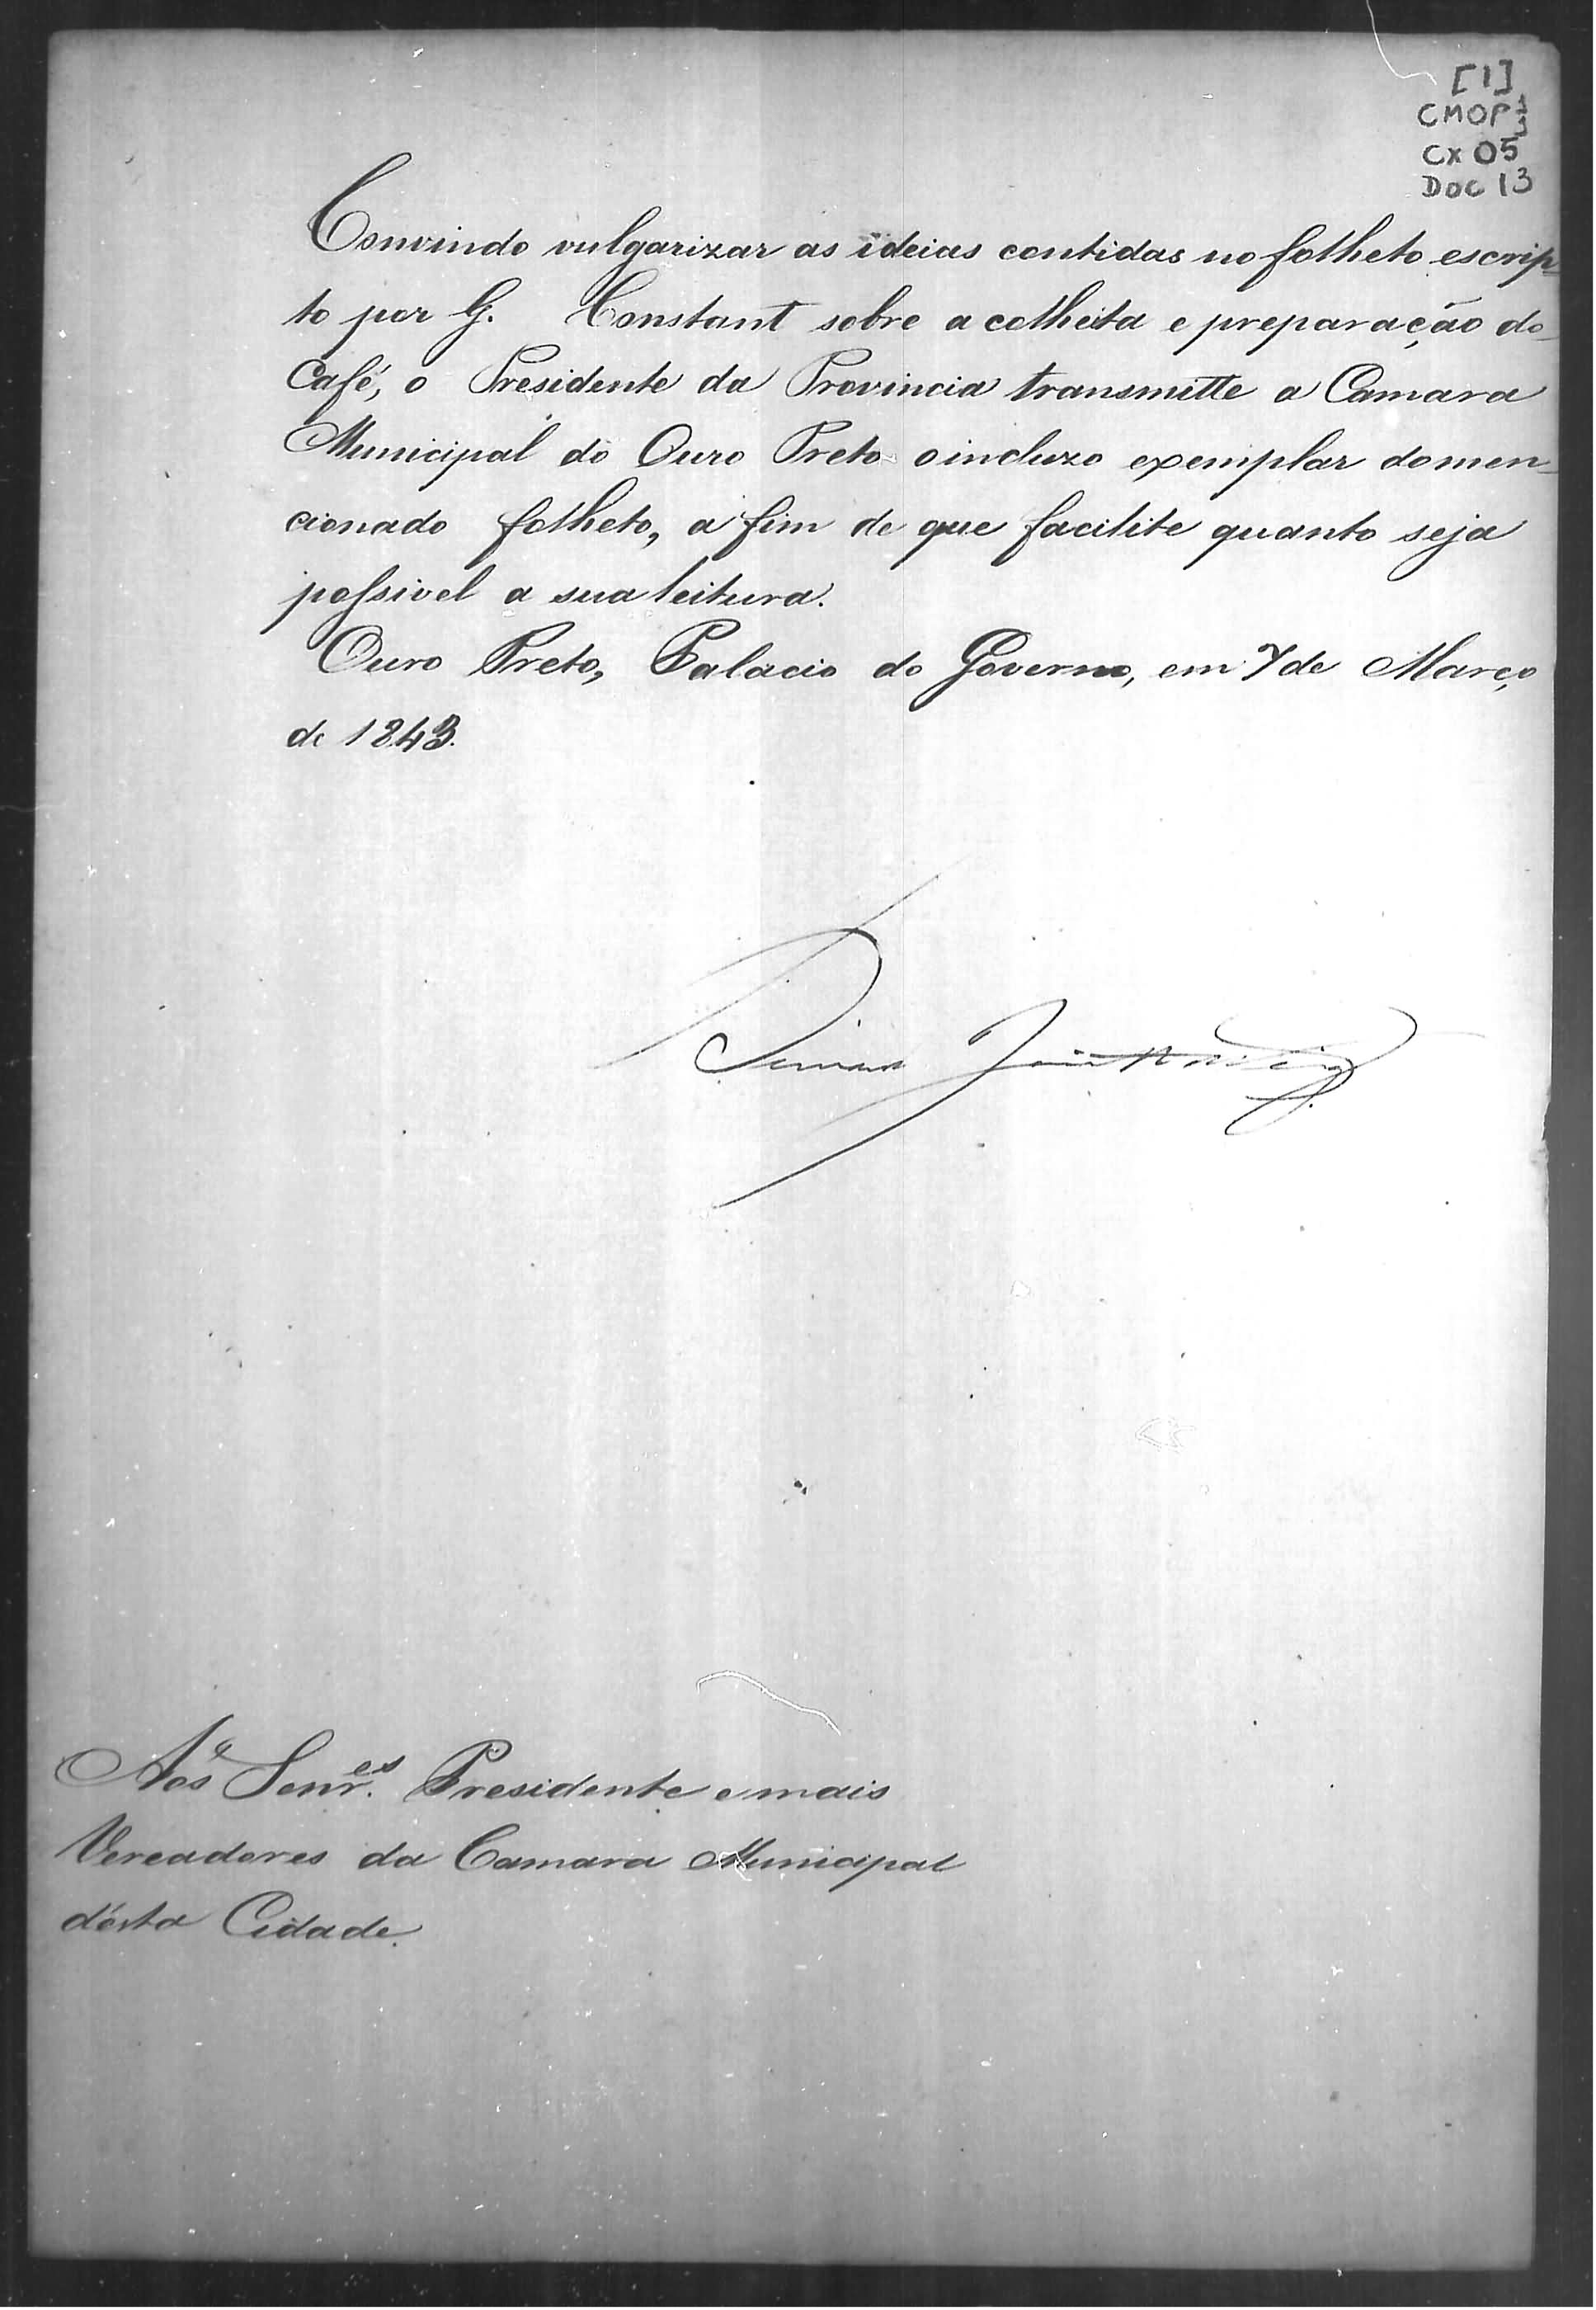 [1]
CMOP 1/3
Cx 05
Doc 13
Convindo vulgarizar as ideias contidas no folheto escrip-
to por G. Constant sobre a colheita e preparação do
Café, o Presidente da Provincia transmitte a Camara
Municipal do Ouro Preto o incluzo exemplar do men-
cionado folheto, a fim de que facilite quanto seja
possivel a sua leitura.
Ouro Preto, Palacio do Governo, em 7 de Março
de 1843.
Aos Senr.es Presidente e mais
Vereadores da Camara Municipal
désta Cidade.